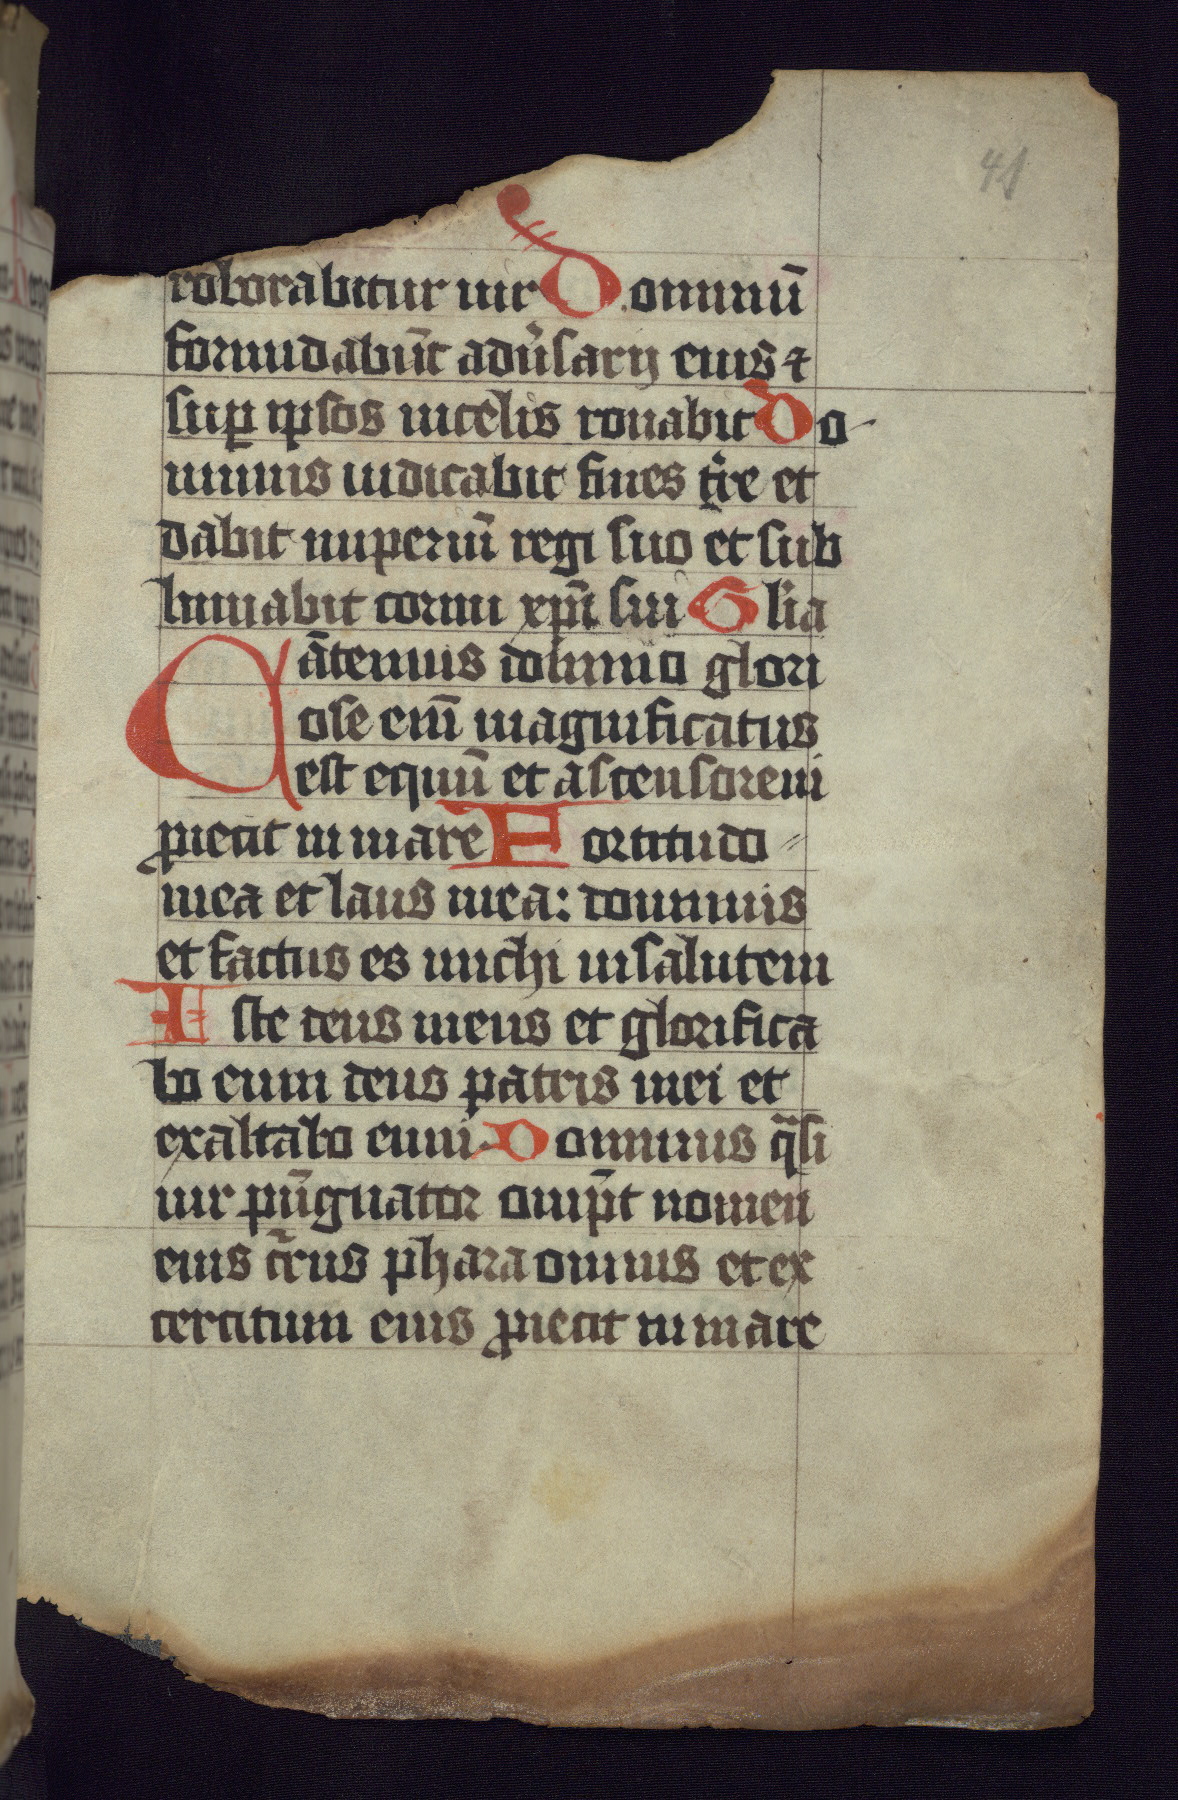 41
roborabitur uir Dominū
formidabūt adūsarij eius ⁊
sup̲ ip̄sos in celis tonabit Do
minus iudicabit fines t̄re et
dabit imperiū regi suo et sub
limabit cornu xp̄i sui Gl̄ia
Cātemus domino glori
ose eni̅ magnificatus
est equū et ascensorem
ꝓiecit in mare Fortitudo
mea et laus mea: dominus
et factus es michi in salutem
Iste deus meus et glorifica
bo eum deus patris mei et
exaltabo eum Dominus q̄si
uir pūgnator omip̄t nomen
eius c̄rus pharaoninis et ex
cercitum eius ꝓiecit in mare